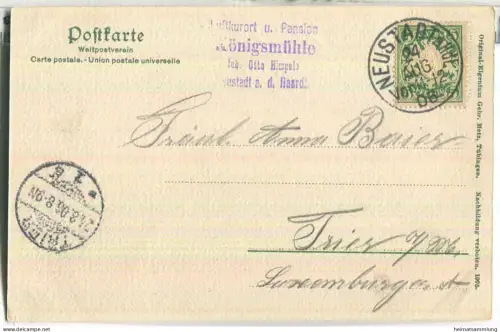 Postkarte
Weltpostverein
Carte postale. - Union postale universelle
Luftkurort u. Pension
Königsmühle
Otto
a. d. Haardt
NEUSTADT
24
AUG
06
Fräulein Anna Baier
Trier a/M.
Luxemburger st
TRIER
24.8.06.8-9N
Original-Eigentum Gebr. Metz, Tübingen. Nachbildung verboten. 1902.
heimatsammlung.net